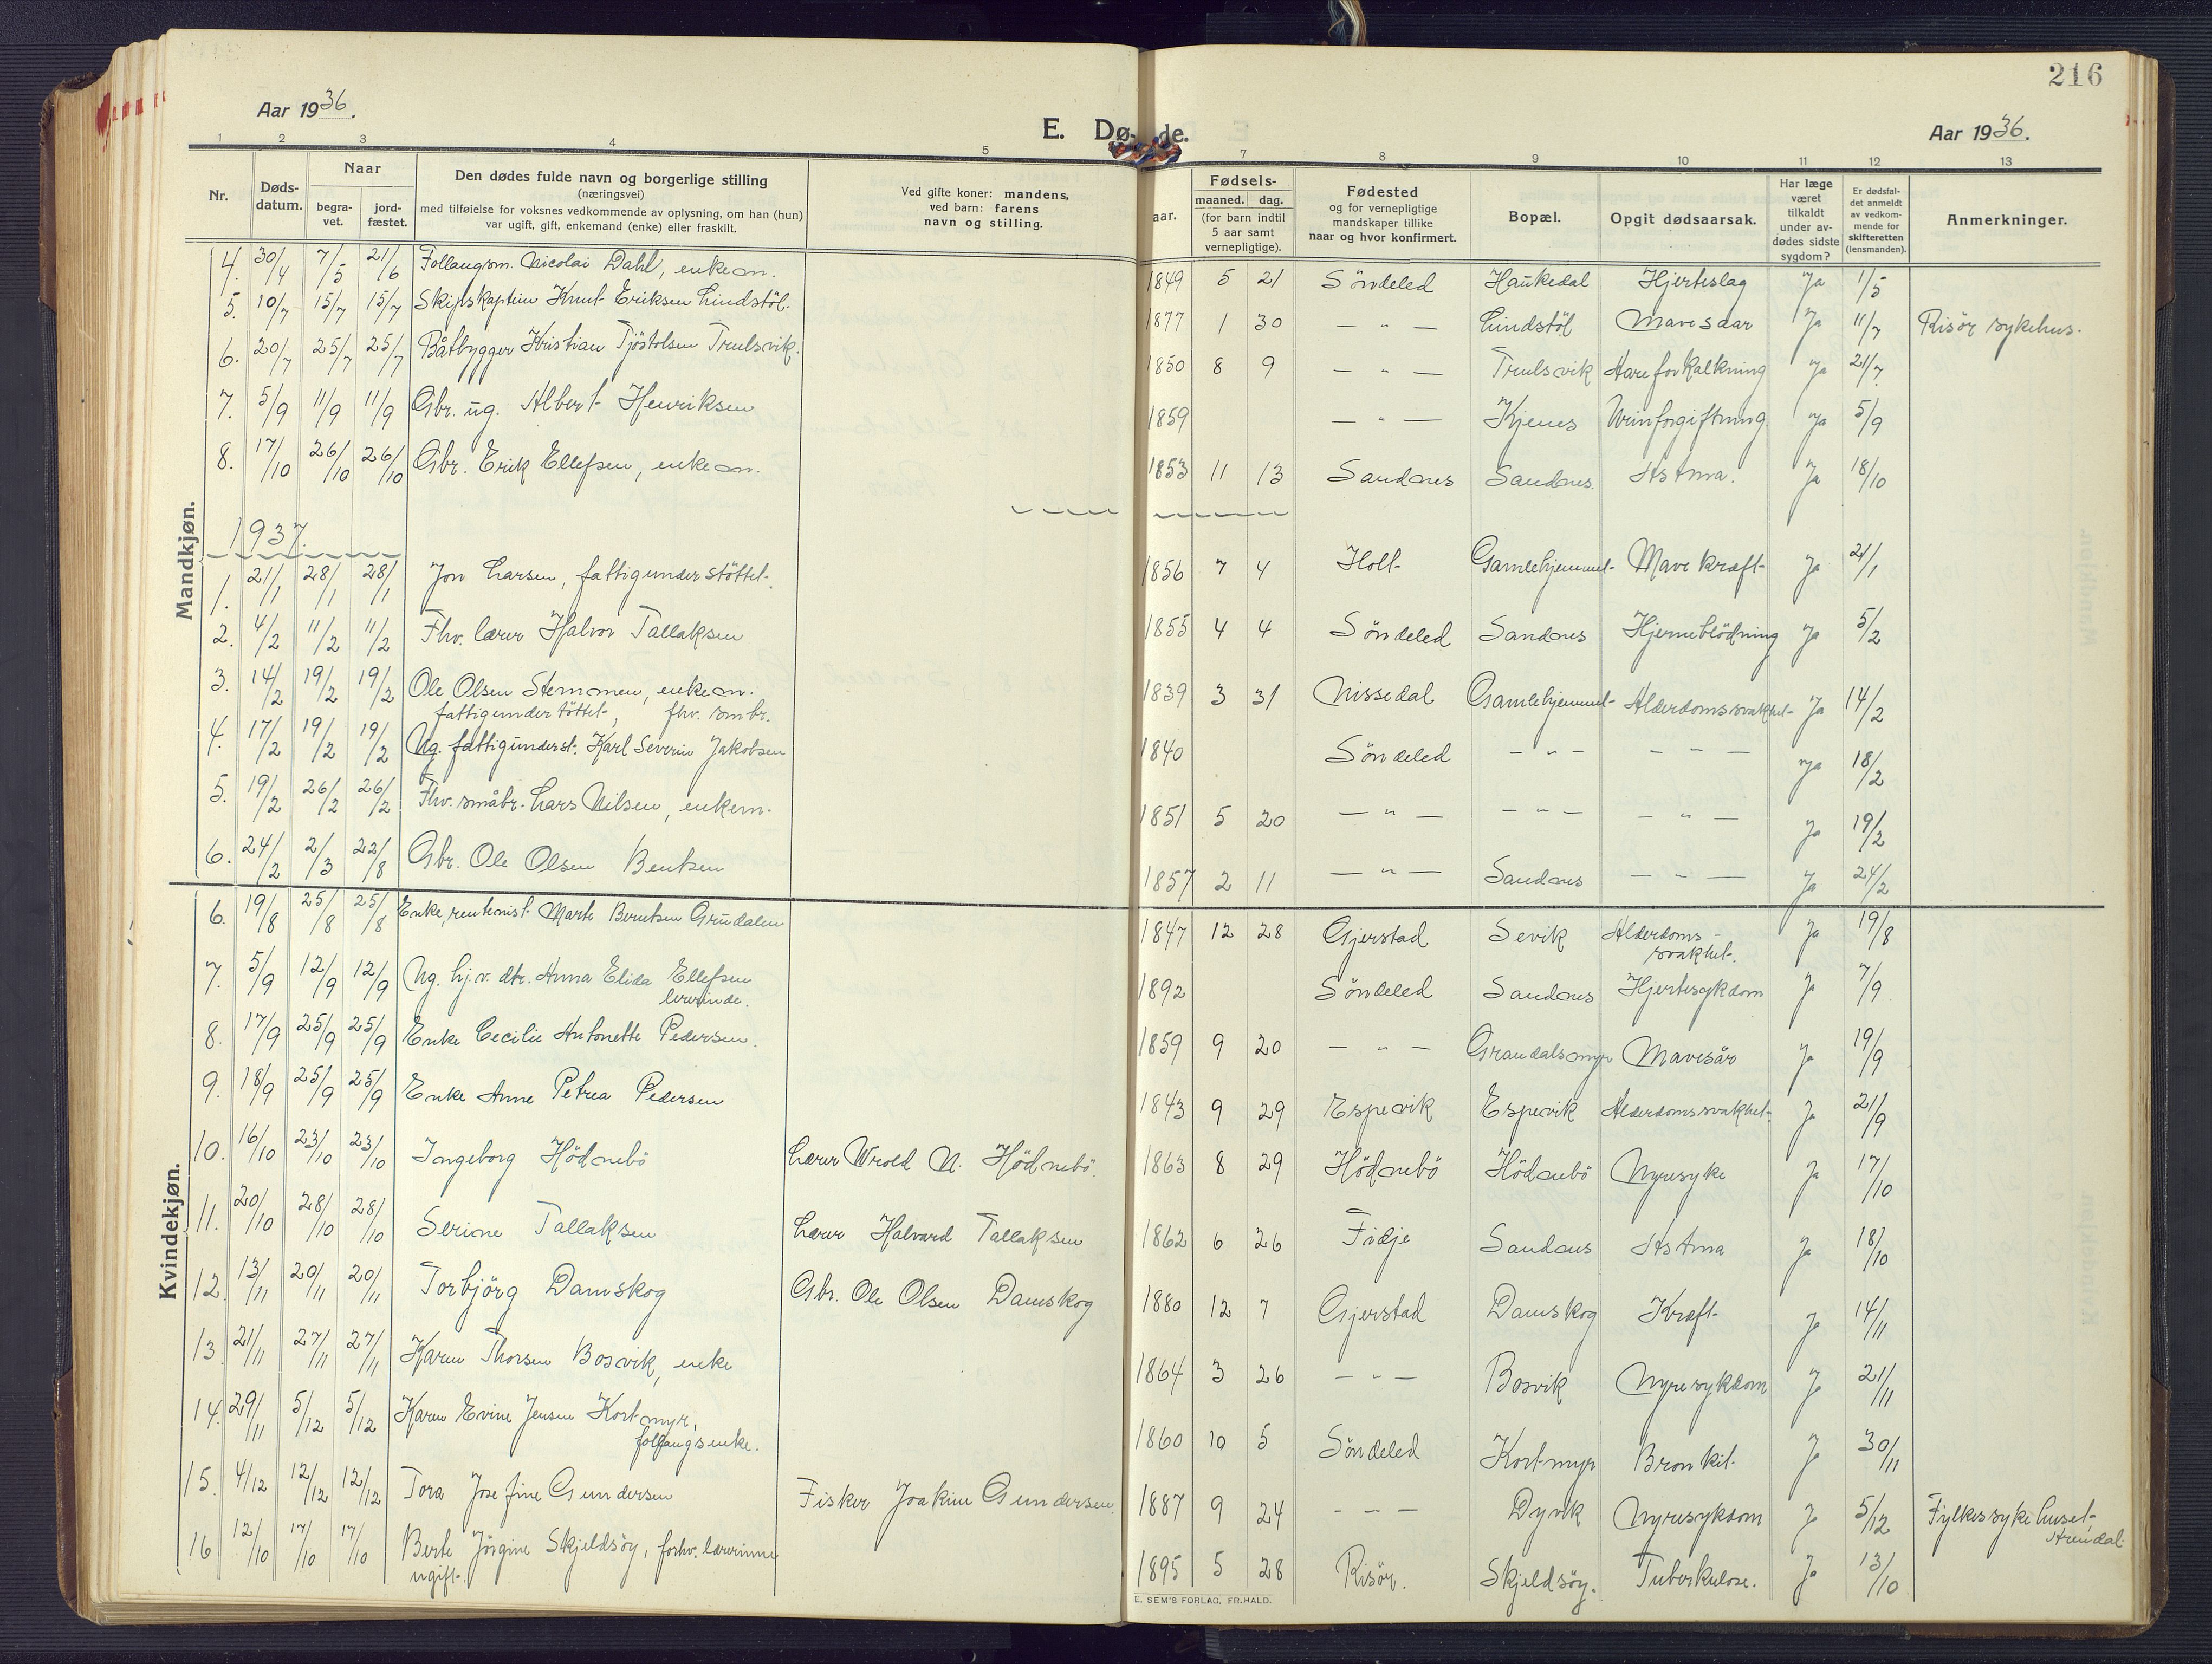 216
Aar 1936.
E. Dø- de.
Aar 1936.
1 2 3 4 5 7 8 9 10 11 12 13
Nr.
Døds-
datum.
Naar
begra-
vet.
jord-
fæstet.
Den dødes fulde navn og borgerlige stilling
(næringsvei)
med tilføielse for voksnes vedkommende av oplysning, om han (hun)
var ugift, gift, enkemand (enke) eller fraskilt.
Ved gifte koner: mandens,
ved barn: farens
navn og stilling.
aar.
Fødsels-
maaned. dag.
(for barn indtil
5 aar samt
vernepligtige).
Fødested
og for vernepligtige
mandskaper tillike
naar og hvor konfirmert.
Bopæl.
Opgit dødsaarsak.
Har læge
været
tilkaldt
under av-
dødes sidste
sygdom?
Er dødsfal-
det anmeldt
av vedkom-
mende for
skifteretten
(lensmanden).
Anmerkninger.
Mandkjøn.
4. 30/4 7/5 21/6 Nicolai Dahl, enkem. 1849 5 21 Söndeled Haukedal Hjerteslag Ja 1/5
5. 10/7 15/7 15/7 Skipskaptein Knut Eriksen Lindstöl. 1877 1 30 — " — Lindstöl Mavesaar Ja 11/7 Risör sykehus.
6. 20/7 25/7 25/7 Båtbygger Kristian Tjöstolsen Trulsvik. 1850 8 9 — " — Trulsvik Hareforkalkning Ja 21/7
7. 5/9 11/9 11/9 Gbr. ug. Albert Henriksen 1859 — " — Kjenes Urinforgiftning Ja 5/9
8. 17/10 26/10 26/10 Gbr. Erik Ellefsen, enkem. 1853 11 13 Sandnes Sandnes. Astma. Ja 18/10
1937.
1. 21/1 28/1 28/1 Jon Larsen, fattigunderstöttet. 1856 7 4 Holt Gamlehjemmet Mavekræft Ja 21/1
2. 4/2 11/2 11/2 Fhv. lærer Halvor Tallaksen 1855 4 4 Söndeled Sandnes Hjerneblödning Ja 5/2
3. 14/2 19/2 19/2 Ole Olsen Stemmen, enkem. 1839 3 31 Nissedal Gamlehjemmet Alderdomssvakhet Ja 14/2
fattigundertöttet, fhv. smbr.
4. 17/2 19/2 19/2 Ug. fattigunderst. Karl Severin Jakobsen 1840 Söndeled — " — — " — Ja 18/2
5. 19/2 26/2 26/2 Fhv. småbr. Lars Nilsen, enkem. 1851 5 20 — " — — " — — " — Ja 19/2
6. 24/2 2/3 22/8 Gbr. Ole Olsen Bentsen 1857 2 11 — " — Sandnes — " — Ja 24/2
Kvindekjøn.
6. 19/8 25/8 25/8 Enke, rentenist Marte Berntsen Grundalen 1847 12 28 Gjerstad Sevik Alderdoms- Ja 19/8
svakhet.
7. 5/9 12/9 12/9 Ug. hj.v. dtr. Anna Elida Ellefsen 1892 Söndeled Sandnes Hjertesykdom Ja 7/9
lererinde.
8. 17/9 25/9 25/9 Enke Cecilie Antonette Pedersen. 1859 9 20 — " — Grandalsmyr Mavesår Ja 19/9
9. 18/9 25/9 25/9 Enke Anne Petrea Pedersen 1843 9 29 Espevik Espevik Alderdomssvakhet. Ja 21/9
10. 16/10 23/10 23/10 Ingeborg Hödnebö Lærer Wrold N. Hödnebö. 1863 8 29 Hödnebö Hödnebö Nyresyke Ja 17/10
11. 20/10 28/10 28/10 Serine Tallaksen Lærer Halvard Tallaksen 1862 6 26 Fidje Sandnes Astma Ja 18/10
12. 13/11 20/11 20/11 Torbjörg Damskog Gbr. Ole Olsen Damskog 1880 12 7 Gjerstad Damskog Kræft Ja 14/11
13. 21/11 27/11 27/11 Karen Thorsen Bosvik, enke 1864 3 26 — " — Bosvik Nyresykdom Ja 21/11
14. 29/11 5/12 5/12 Karen Evine Jensen Kortmyr, 1860 10 5 Söndeled Kortmyr Bronkit Ja 30/11
folgangsenke.
15. 4/12 12/12 12/12 Tora Josefine Gundersen Fisker Joakim Gundersen. 1887 9 24 — " — Dyvik Nyresykdom Ja 5/12 Fylkessykehuset
Arendal
16 12/10 17/10 17/10 Berte Jörgine Skjeldsöy, forhv. lærerinne 1895 5 28 Risör. Skjeldsöy. Tuberkulose. Ja 13/10
ugift.
E. SEM'S FORLAG, FR.HALD.